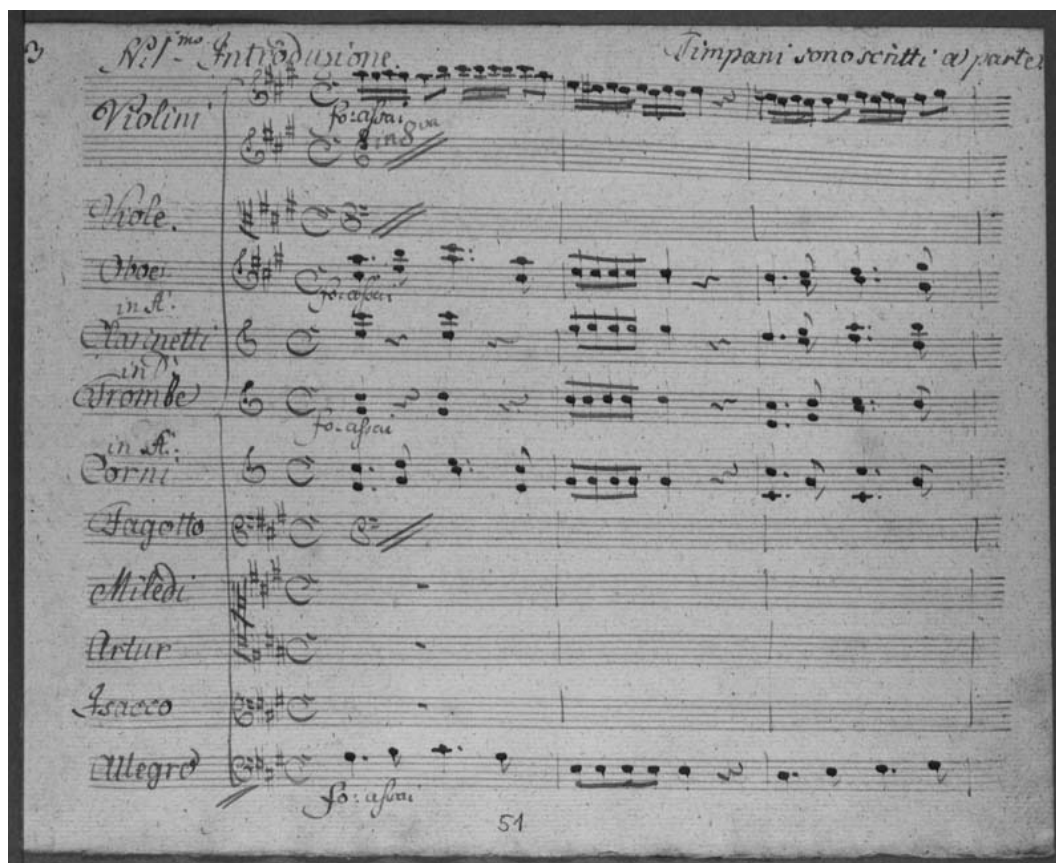 N: 1mo Introduzione.
Timpani sono scritti a parte
Violini
fo: assai
in 8va
Viole.
Oboei
fo: assai
in A:
Clarinetti
in D:
Trombe
fo: assai
in A:
Corni
Fagotto
Miledi
Artur
Isacco
Allegro
fo: assai
51